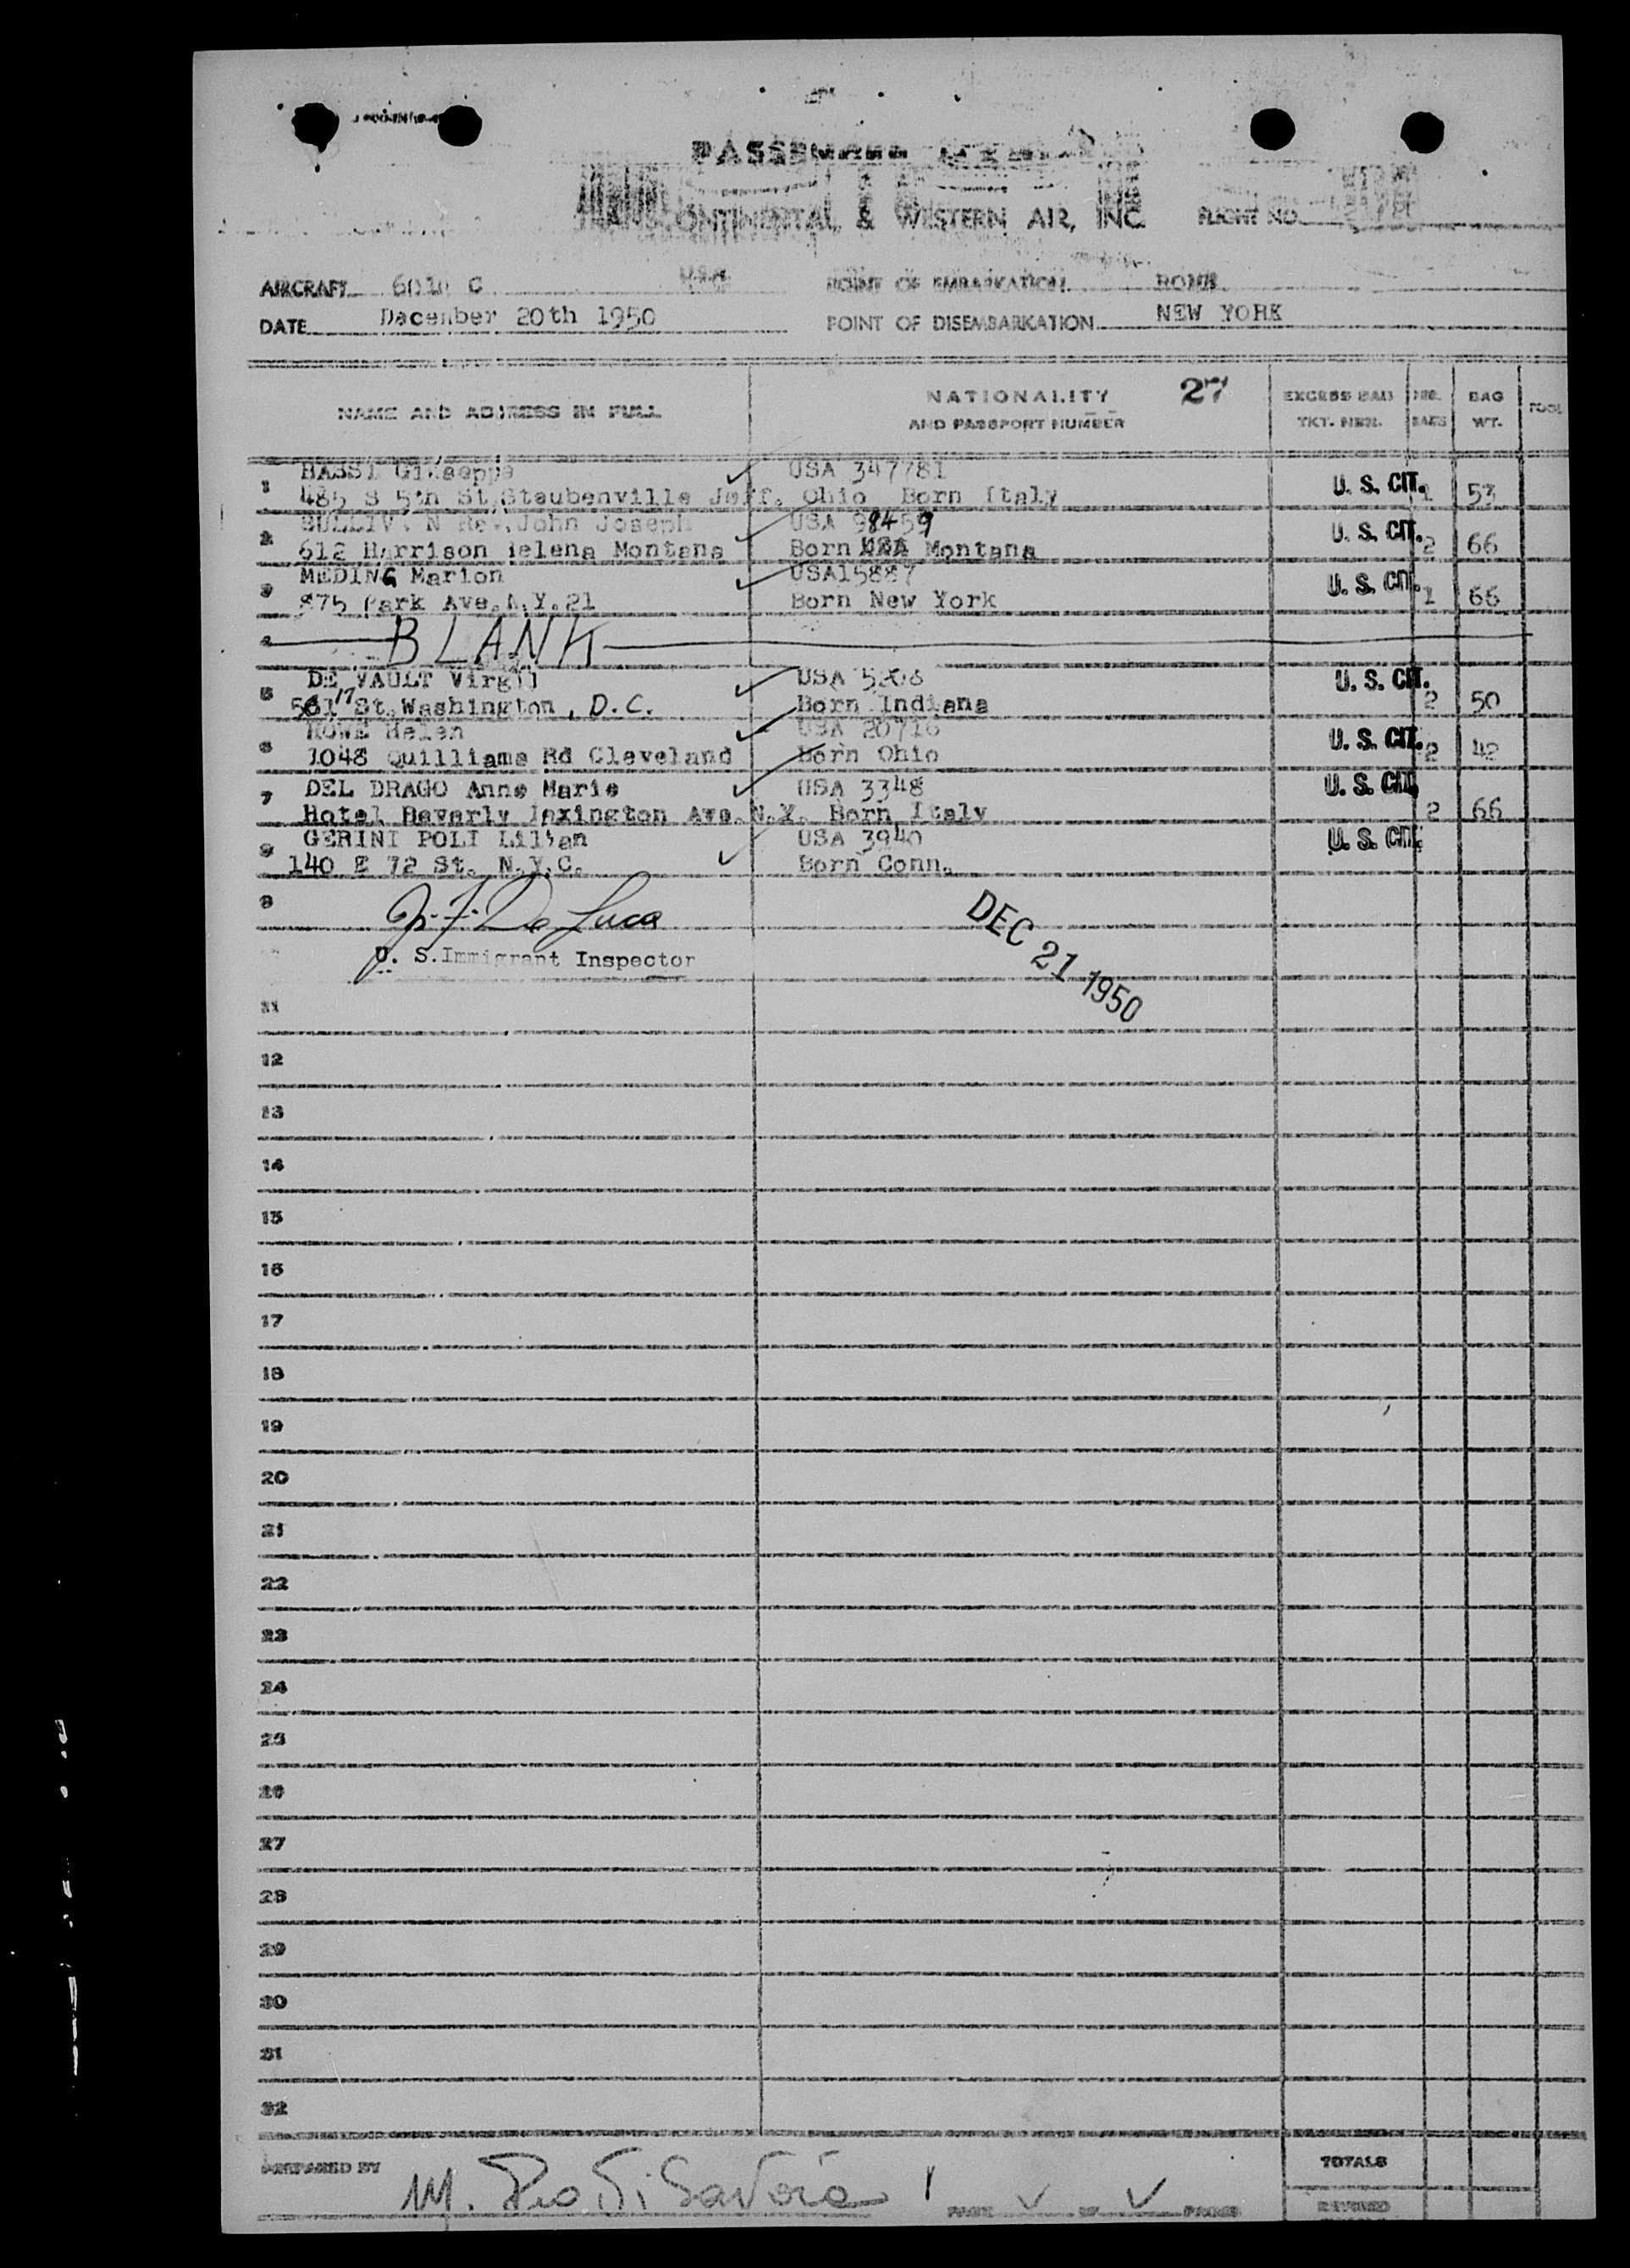 PASSENGER
TRANSCONTINENTAL & WESTERN AIR, INC. FLIGHT NO.
AIRCRAFT 6010 C POINT OF EMBARKATION ROME
DATE Dacember 20th 1950 POINT OF DISEMBARKATION NEW YORK
NAME AND ADDRESS IN FULL NATIONALITY AND PASSPORT NUMBER 27 EXCESS BAG TKT. NBR. NBR. BAGS BAG WT.
1 BASSI Giuseppe USA 347781 U. S. CIT.
485 S 5th St Staubenville Jeff. Ohio Born Italy 1 53
2 SULLIVAN Rev. John Joseph USA 98459 U. S. CIT.
612 Harrison Helena Montana Born USA Montana 2 66
3 MEDING Marion USA15887 U. S. CIT.
875 Park Ave. N.Y. 21 Born New York 1 66
4 BLANK
5 DE VAULT Virgil USA U. S. CIT.
17 St. Washington, D.C. Born Indiana 2 50
6 Helen USA 20716 U. S. CIT.
1048 Quilliams Rd Cleveland Born Ohio 2 42
7 DEL DRAGO Anne Marie USA 3348 U. S. CIT.
Hotel Baverly Lexington Ave. N.Y. Born Italy 2 66
GERINI POLI Lilian USA 3940 U. S. CIT.
140 E 72 St. N.Y.C. Born Conn.
9 De Luca
U. S. Immigrant Inspector
DEC 21 1950
11
12
13
14
15
16
17
18
19
20
21
22
23
24
25
26
27
28
29
30
31
32
PREPARED BY M. Di Savoia PAGE OF PAGES
TOTALS